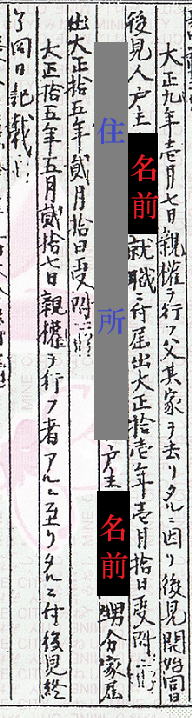 大正九年壱月七日親権ヲ行フ父其家ヲ去リタルニ因リ後見開始同日
後見人戸主名前就職ニ付届出大正拾壱年壱月拾日受附㊞
住所戸主名前甥分家届
出大正拾五年貳月拾日受附㊞
大正拾五年五月貳拾七日親権ヲ行フ者アルニ至リタルニ付後見終
了同日記載㊞